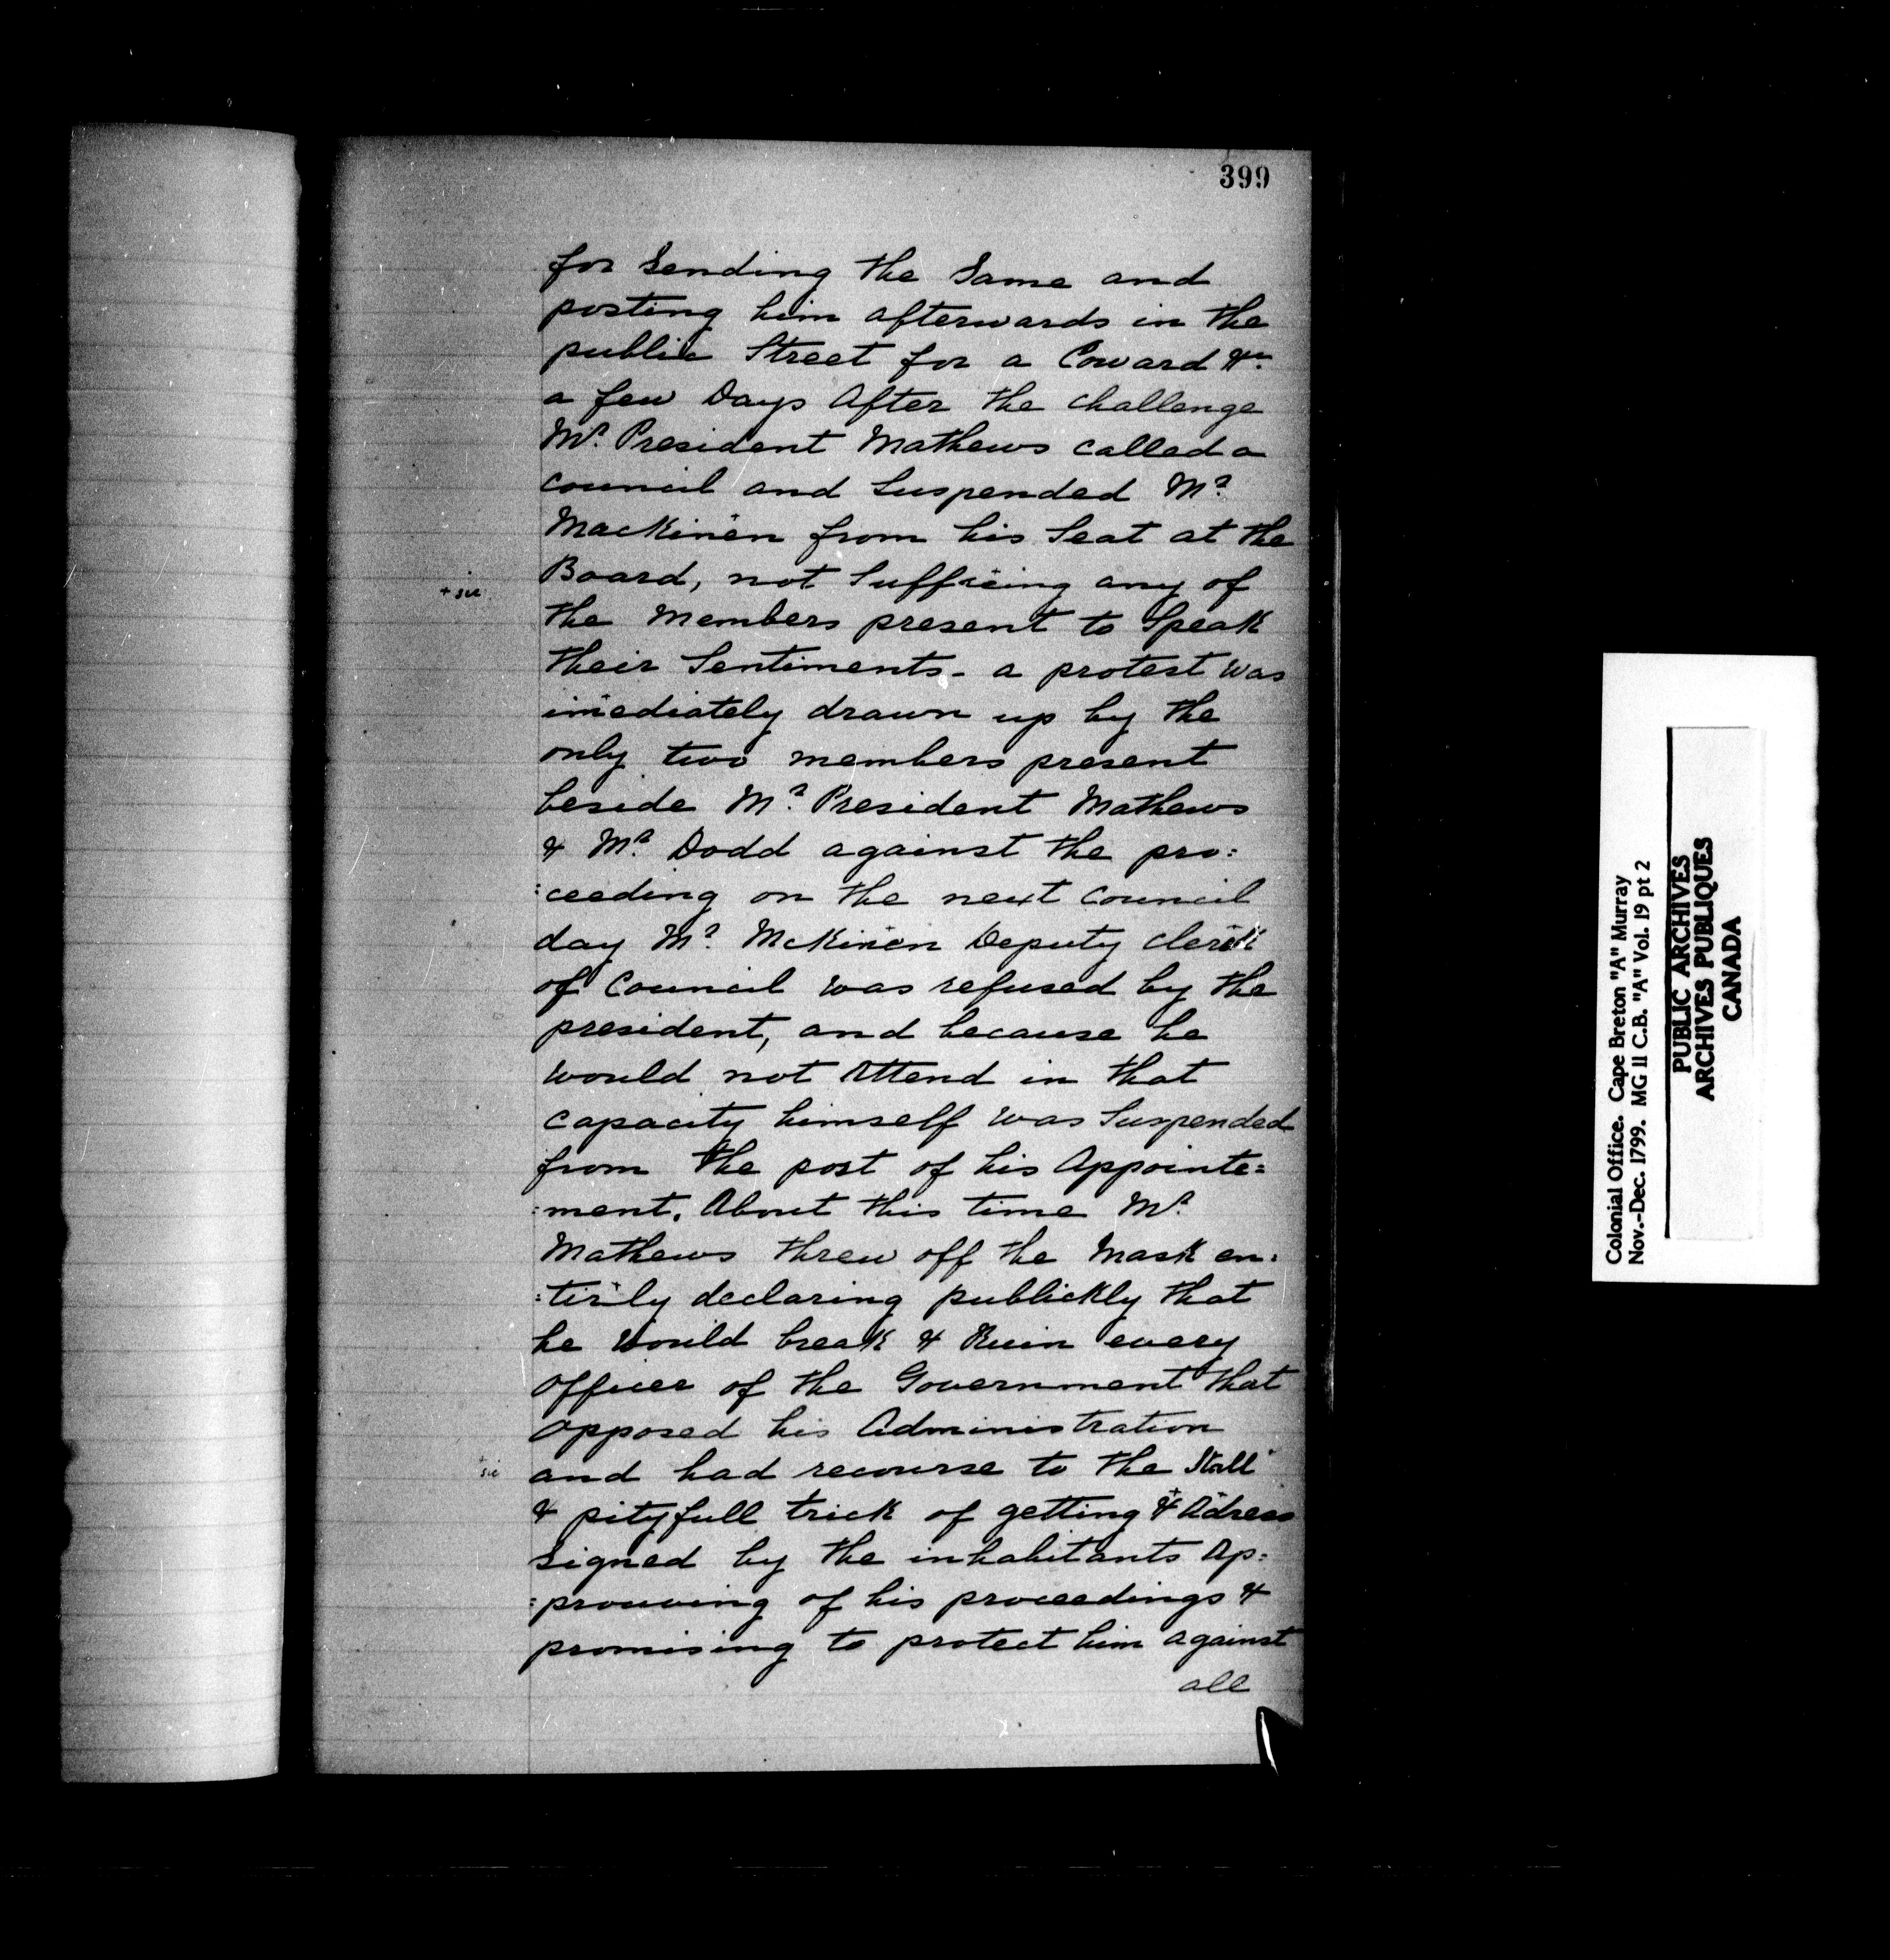 399
for Sending the Same and
posting him afterwards in the
public Street for a Coward &c.
a few Days After the challenge
Mr. President Mathews called a
council and Suspended Mr.
Mackinen from his Seat at the
Board, not Sufficing any of
+ sic
the Members present to Speak
their Sentiments - a protest was
imediately drawn up by the
only two members present
beside Mr. President Mathews
& Mr. Dodd against the pro:
:ceeding on the next council
day Mr. McKinen Deputy clerk
of Council was refused by the
president, and because he
would not Attend in that
capacity himself was Suspended
from the post of his Appointe=
:ment. About this time Mr.
Mathews threw off the Mask en:
:tirly declaring publickly that
he would break & Ruin every
officer of the Government that
opposed his Administration
and had recourse to the
+ sic
& pityfull trick of getting & Adress
signed by the inhabitants Ap:
:prouving of his proceedings &
promising to protect him against
all
Colonial Office. Cape Breton "A" Murray
Nov.-Dec. 1799. MG 11 C.B. "A" Vol. 19 pt 2
PUBLIC ARCHIVES
ARCHIVES PUBLIQUES
CANADA